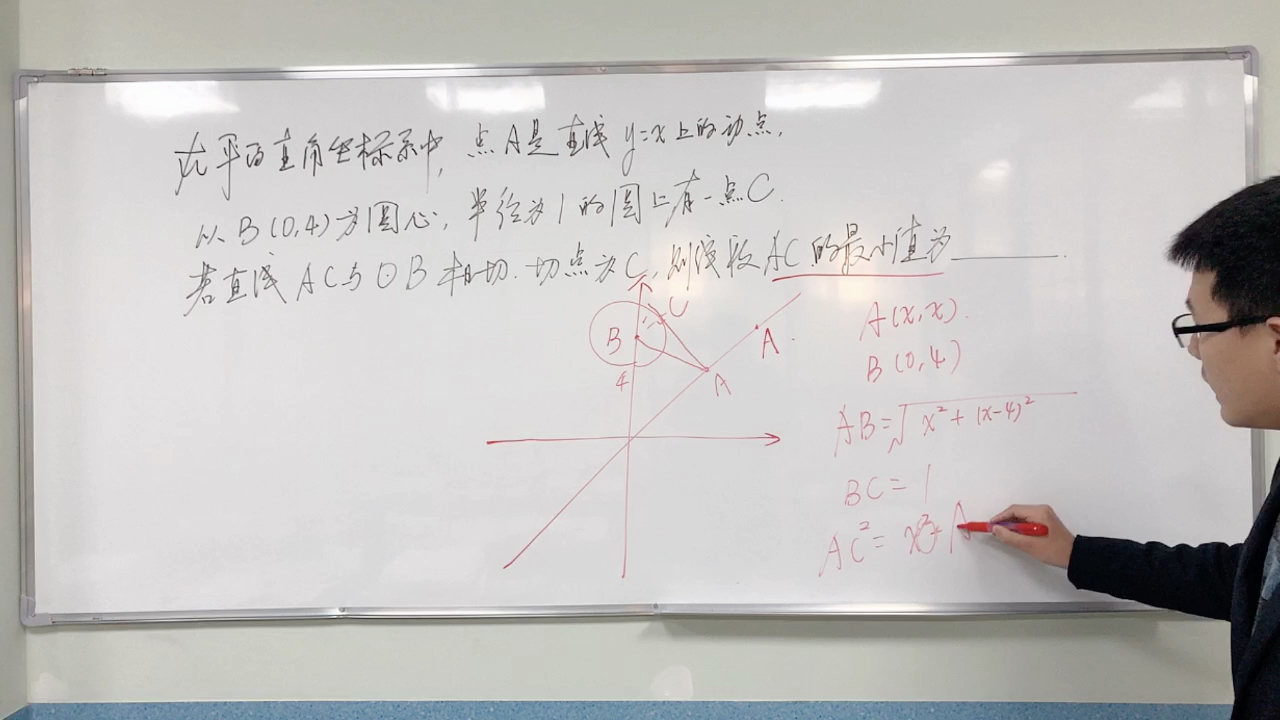 在平面直角坐标系中, 点A是直线 y=x 上的动点,
以 B(0,4) 为圆心, 半径为 1 的圆上有一点 C.
若直线 AC 与 ⊙B 相切. 切点为 C, 则线段 AC 的最小值为______.
C
B
A
4
A
A(x,x).
B(0,4)
AB=√x²+(x-4)²
BC=1
AC²= x²+